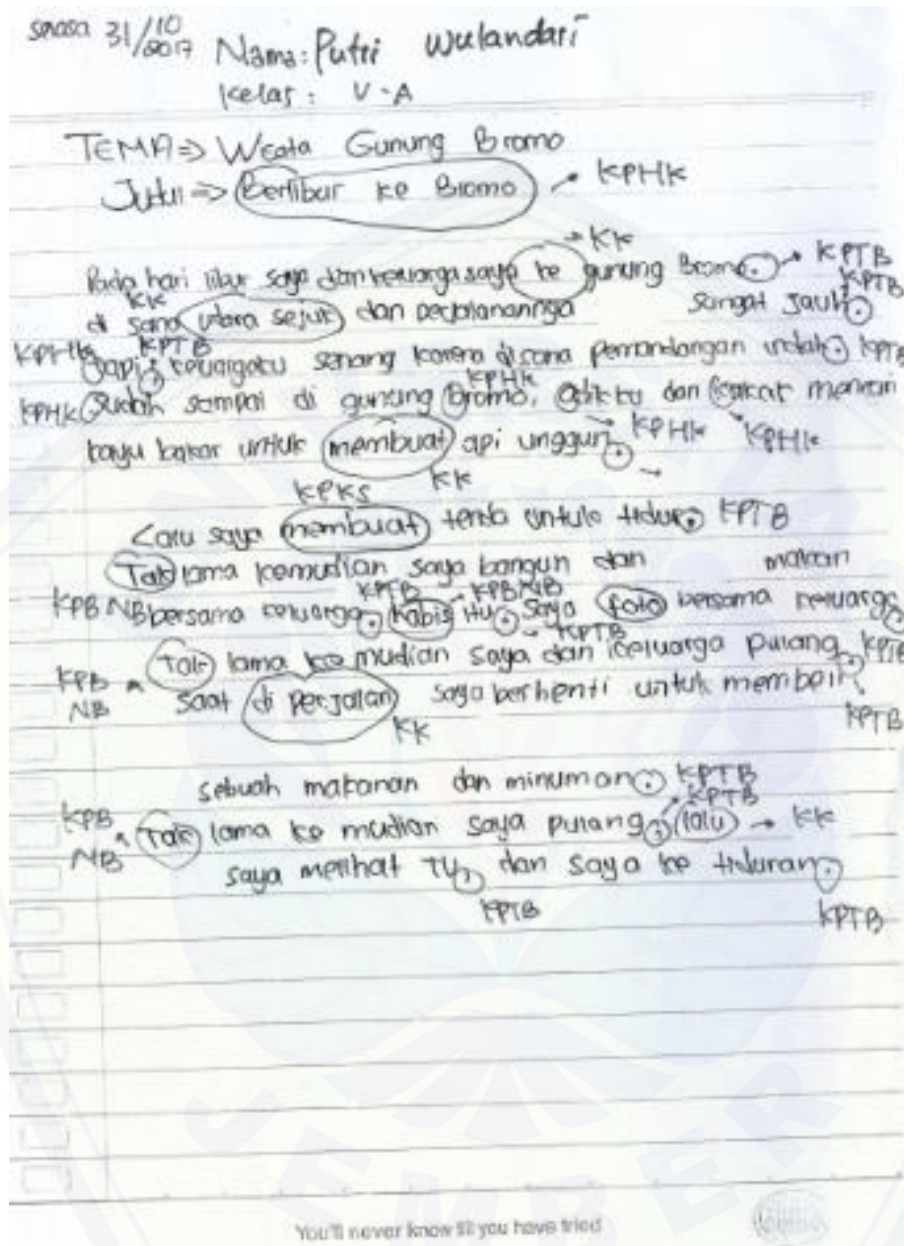 selasa 31/10 2017 Nama: Putri Wulandari
Kelas: V-A
TEMA => Wisata Gunung Bromo
Judul => Berlibur ke Bromo KPHK
KK
Pada hari libur saya dan keluarga saya ke gunung Bromo. KPTB
KK KPTB
di sana udara sejuk dan perjalanannya sangat jauh.
KPHK KPTB
tapi, keluargaku senang karena disana pemandangan indah. KPTB
KPHK
KPHK Sudah sampai di gunung bromo, adikku dan kakak mencari
kayu bakar untuk membuat api unggun. KPHK KPHK
KPKS KK
Lalu saya membuat tenda untuk tidur. KPTB
Tak lama kemudian saya bangun dan makan
KPTB KPBNB
KPB NB bersama keluarga. habis itu. Saya foto bersama keluarga.
KPTB
Tak lama ke mudian saya dan keluarga pulang. KPTB
KPB NB saat di perjalan saya berhenti untuk membeli
KK KPTB
sebuah makanan dan minuman. KPTB
KPTB
KPB NB Tak lama ke mudian saya pulang. lalu KK
saya melihat TV, dan saya ke tiduran.
KPTB KPTB
JEMBER
You'll never know till you have tried